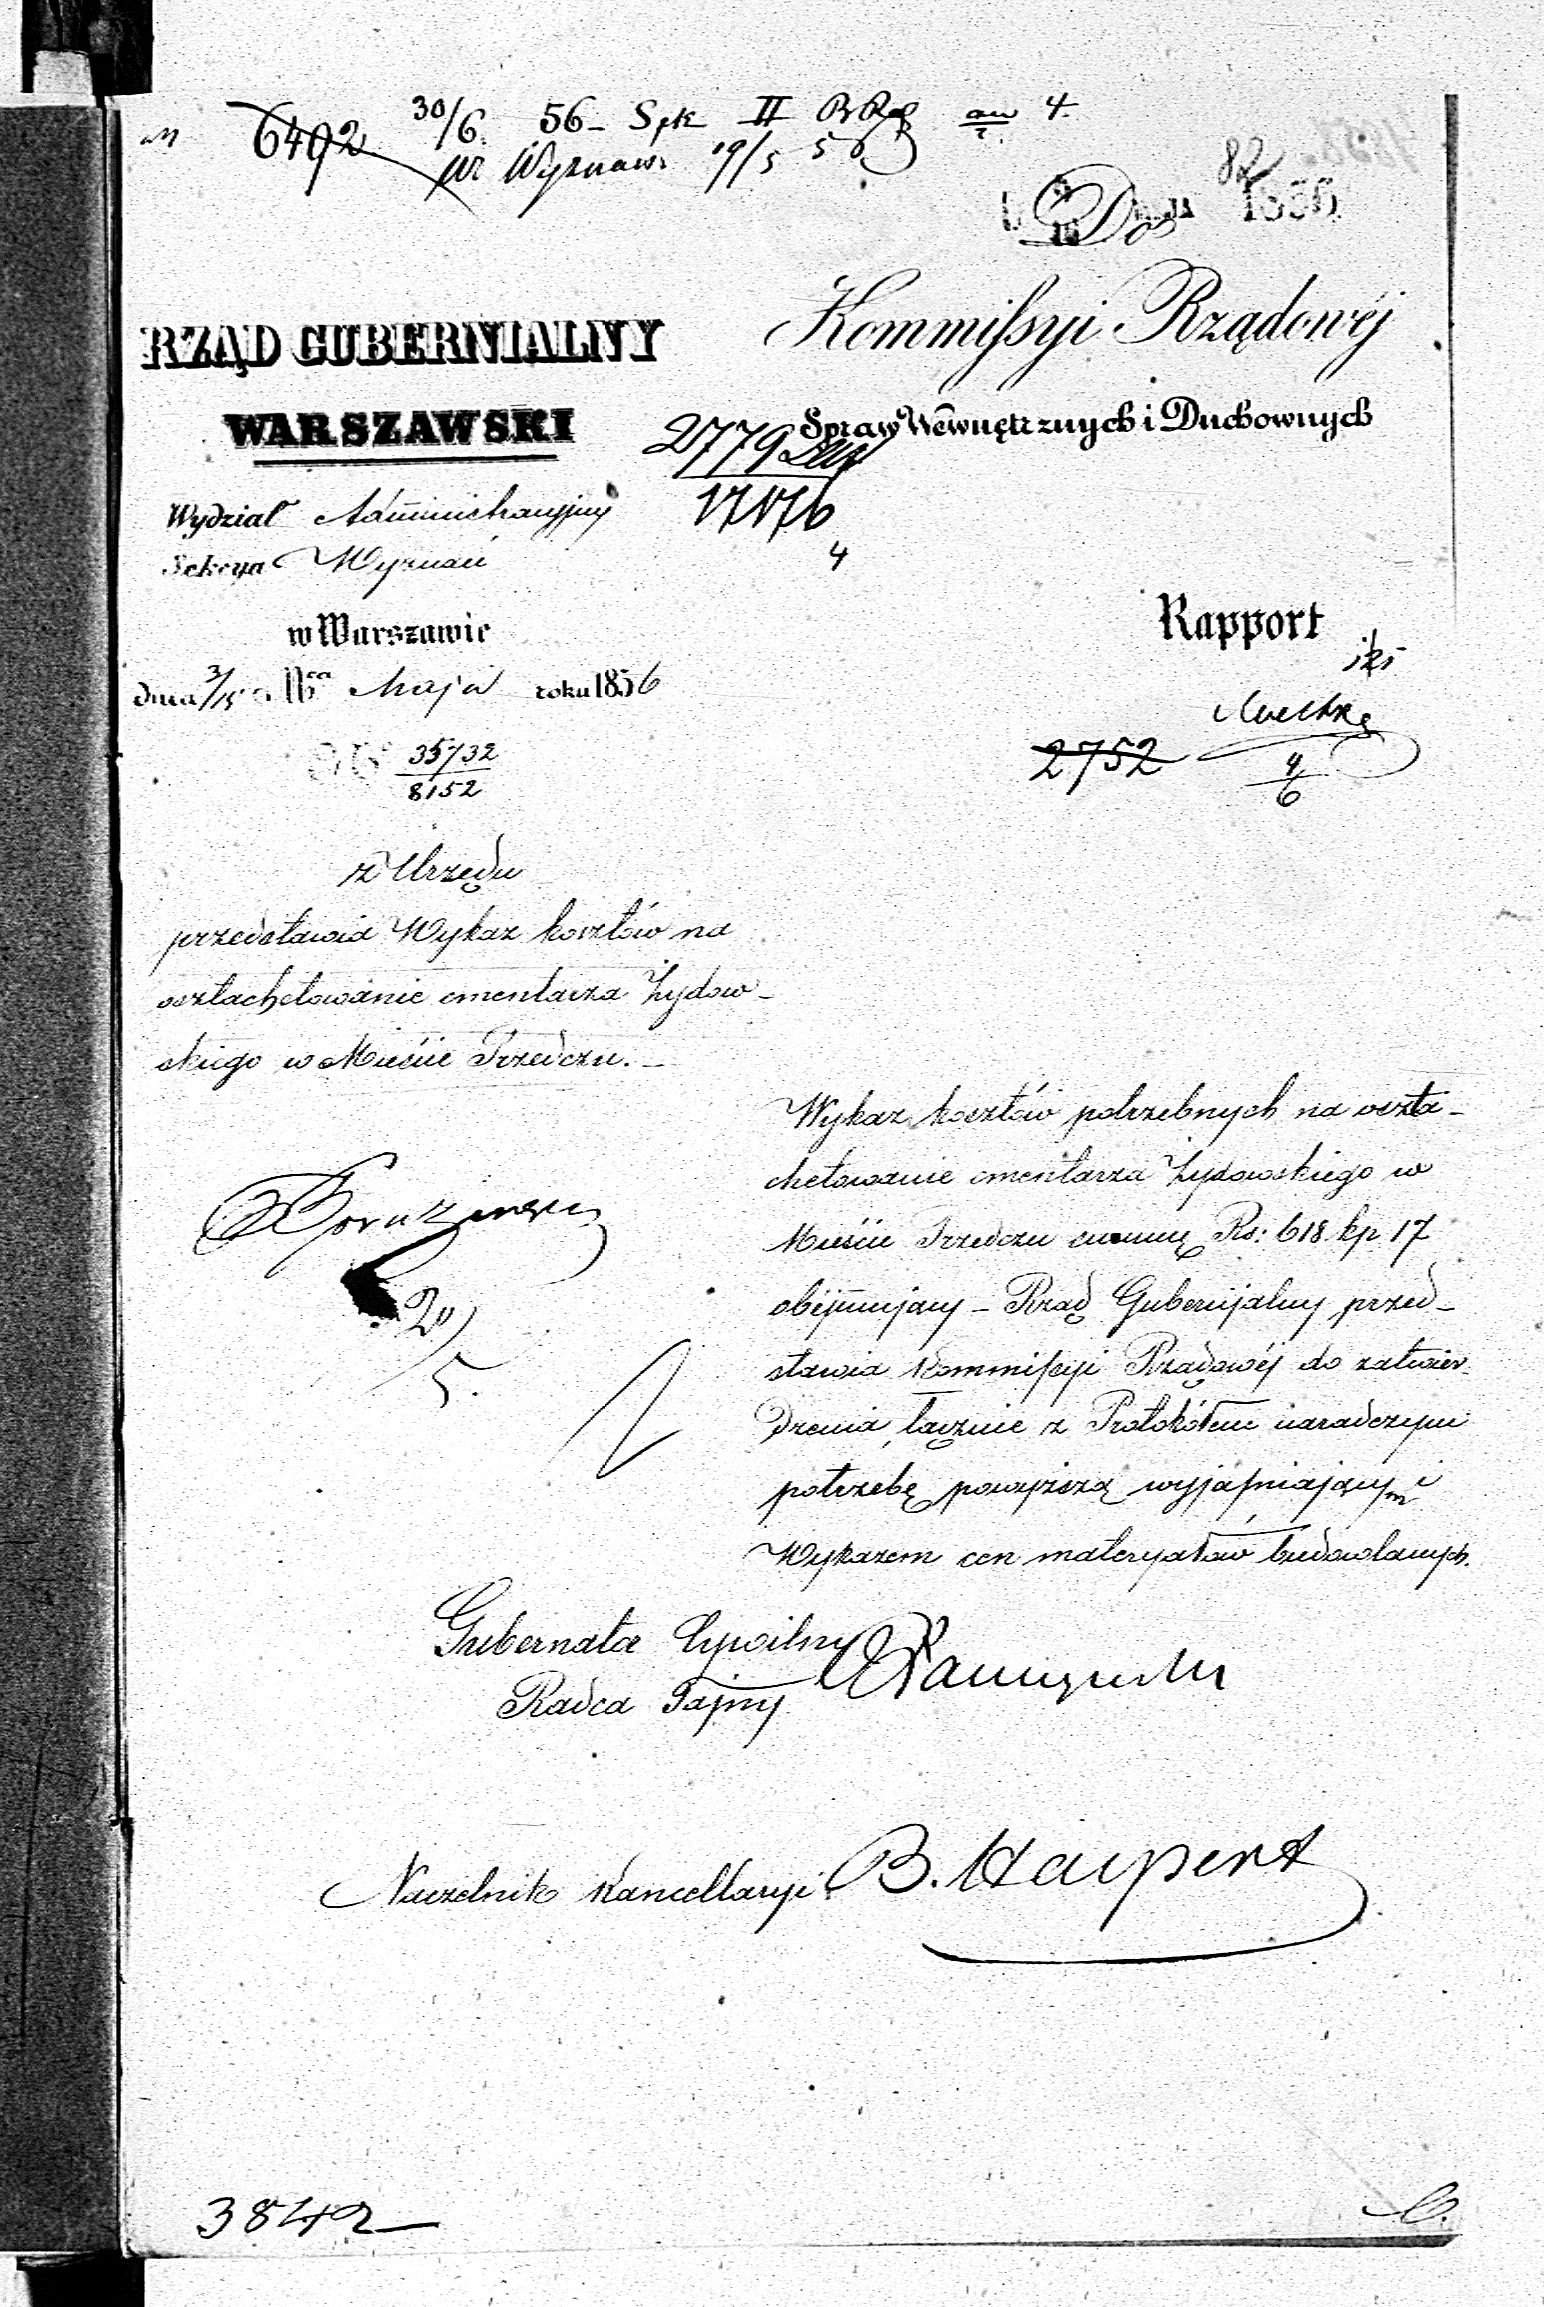 6492 30/6 56 – Spk II
Wyznań 19/5 56
82
1856
Do
RZĄD GUBERNIALNY
WARSZAWSKI
Kommissyi Rządowéj
Spraw Wewnętrznych i Duchownych
2779
17176
4
Wydział Administracyjny
Sekcya Wyznań
w Warszawie
dnia 3/15 Maja roku 1856
No 35732
8152
Rapport
2752
4
6
z Urzędu
przedstawia Wykaz kosztów na
osztachetowanie cmentarza Żydow-
skiego w Mieście Przedczu. –
20
5.
Wykaz kosztów potrzebnych na oszta-
chetowanie cmentarza Żydowskiego w
Mieście Przedczu summę Rs: 618 kp 17
obéjmujący – Rząd Gubernijalny przed-
stawia Kommissyi Rządowéj do zatwier-
dzenia, łącznie z Protokółem naradczym
potrzebę powyższą wyjaśniającym i
Wykazem cen materyałów budowlanych.
Gubernator Cywilny
Radca Tajny
Naczelnik Kancellaryi B. Halpert
3842